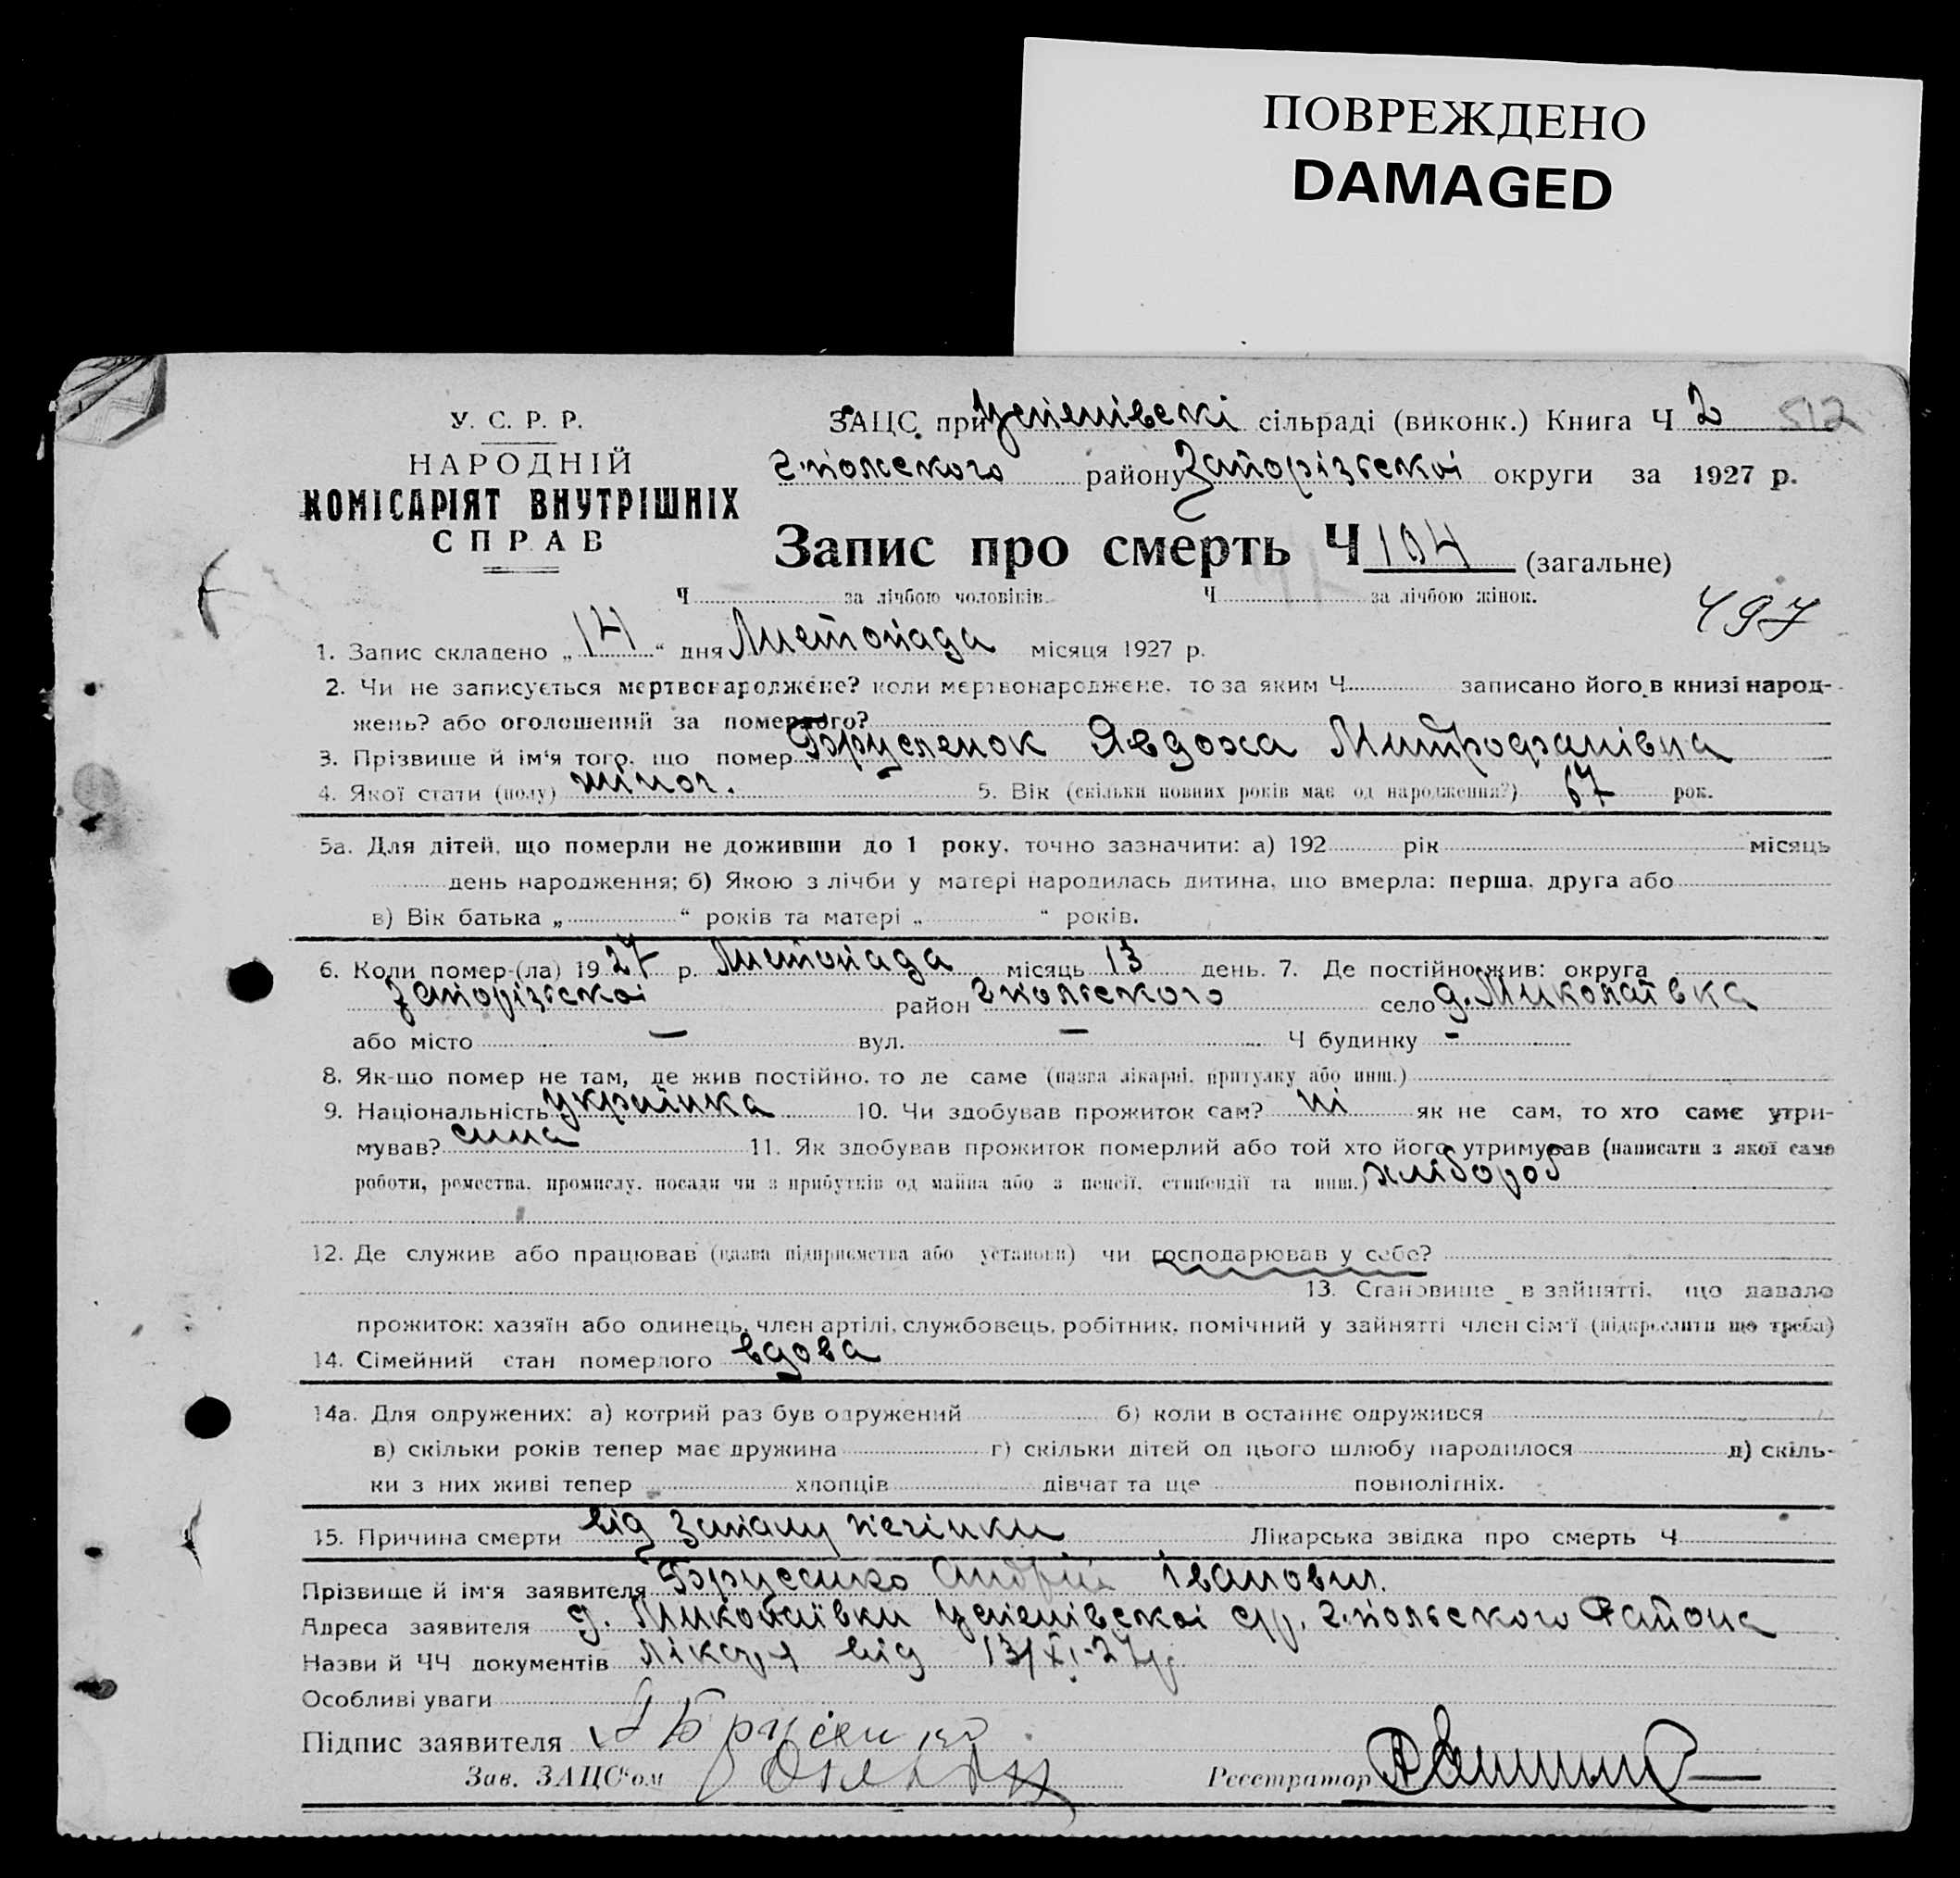 ПОВРЕЖДЕНО
DAMAGED
У. С. Р. Р.
НАРОДНІЙ
КОМІСАРІЯТ ВНУТРІШНІХ
СПРАВ
ЗАЦС при Успенівскі сільраді (виконк.) Книга Ч 2 512
г.польского району Запорізської округи за 1927 р.
Запис про смерть Ч 104 (загальне)
Ч за лічбою чоловіків Ч за лічбою жінок.
497
1. Запис складено „14“ дня Листопада місяця 1927 р.
2. Чи не записується мертвонароджене? коли мертвонароджене, то за яким Ч записано його в книзі народ-
жень? або оголошений за померлого?
3. Прізвище й ім'я того, що помер Бруспенок Явдоха Митрофанівна
4. Якої стати (полу) жіноч. 5. Вік (скільки повних років має од народження?) 67 рок.
5а. Для дітей, що померли не доживши до 1 року, точно зазначити: а) 192 рік місяць
день народження; б) Якою з лічби у матері народилась дитина, що вмерла: перша, друга або
в) Вік батька „ “ років та матері „ “ років.
6. Коли помер-(ла) 1927 р. Листопада місяць 13 день. 7. Де постійно жив: округа
Запорізскоі район г польского село д. Миколаївка
або місто — вул. — Ч будинку -
8. Як-що помер не там, де жив постійно, то де саме (назва лікарні, притулку або инш.)
9. Національність українка 10. Чи здобував прожиток сам? ні як не сам, то хто саме утри-
мував? сина 11. Як здобував прожиток померлий або той хто його утримував (написати з якої саме
роботи, ремества, промислу, посади чи з прибутків од майна або з пенсії, стипендії та инш.) хлібороб
12. Де служив або працював (назва підприємства або установи) чи господарював у себе?
13. Становище в зайнятті, що давало
прожиток: хазяїн або одинець, член артілі, службовець, робітник, помічний у зайнятті член сім'ї (підкреслити що треба)
14. Сімейний стан померлого вдова
14а. Для одружених: а) котрий раз був одружений б) коли в останнє одружився
в) скільки років тепер має дружина г) скільки дітей од цього шлюбу народилося д) скіль-
ки з них живі тепер хлопців дівчат та ще повнолітніх.
15. Причина смерти від запалу печінки Лікарська звідка про смерть Ч
Прізвище й ім'я заявителя Андрій Іванович.
Адреса заявителя д. Миколаївки Успенівскоі с/р. г.польского Района
Назви й ЧЧ документів лікаря від 13/XI-27р.
Особливі уваги
Підпис заявителя
Зав. ЗАЦС'ом Реєстратор